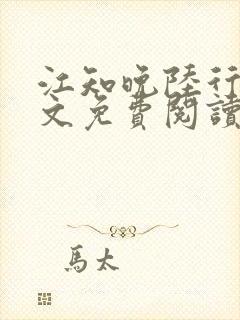 江知晚陸行
文免費閱讀
馬太